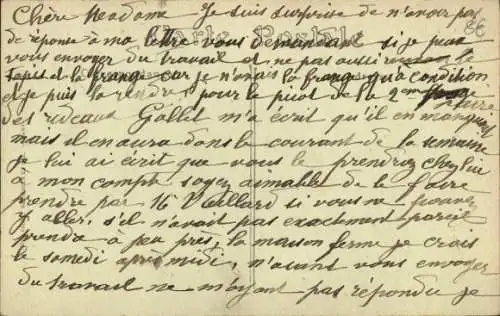 Chère Madame Je suis surprise de n'avoir pas
de réponse à ma lettre vous demandant si je peux
vous envoyer du travail et ne pas avoir le
tapis et la frange car je n'avais la frange qu'à condition
et je puis la rendre pour le picot de la 2eme
des rideaux Gallet m'a écrit qu'il en manquait
mais il en aura dans le courant de la semaine
je lui ai écrit que vous le prendrez chez lui
à mon compte soyez aimable de le faire
prendre par 16 Vieillard si vous ne pouvez
y aller, s'il n'avait pas exactement pareil
prendre à peu près, la maison ferme je crois
le samedi après midi, n'ayant vous envoyer
du travail ne m'ayant pas répondu je
Carte Postale